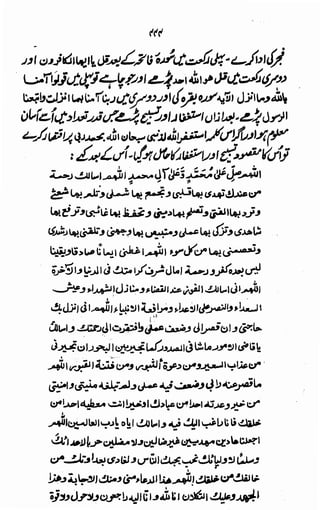 ۲۲۲
فجر کی ادا کرے ۔ پہلی رکعت میں سورۂ فاتحہ کے بعد قل یا ایھا الکافرون اور
دوسری رکعت میں قل ھو اللہ احد پڑھے اور جو چاہے تو پہلی میں قولوا آمنا
باللہ وما انزل الآیہ سورہ بقرہ کی اور دوسری میں ربنا آمنا بما انزلت واتبعنا
الرسول پڑھے۔ بعد ازاں استغفار اور تسبیح پڑھے جس قدر تعداد میں اسے آسان
معلوم ہو اور اگر اس کلمہ استغفر اللہ لذنبی سبحان اللہ بحمد ربی پر اقتصار کرے
تو اس کا مقصود تسبیح اور استغفار کا حاصل ہو گیا۔ اس کے بعد کہے:
اللھم صل علی محمد و علی آل محمد اللھم اسالک رحمة
من عندک تھدی بھا قلبی و تجمع بھا شملی و تلم بھا شعثی
و ترد بھا الفتی و تصلح بھا دینی و تحفظ بھا غائبی و ترفع بھا
شاھدی و تزکی بھا عملی و تبیض بھا وجھی و تلقنی بھا رشدی
و تعصمنی بھا من کل سوء اللھم اعطنی ایمانا صادقا و یقینا
لیس بعدہ کفر و رحمة انال بھا شرف کرامتک فی الدنیا والآخرة
اللھم انی اسالک الفوز عند القضاء و منازل الشھداء و عیش
السعداء والنصر علی الاعداء و مرافقة الانبیاء اللھم انی انزل بک
حاجتی و ان قصر رائی و ضعف عملی وافتقرت الی رحمتک و اسالک
یا قاضی الامور ویا شافی الصدور کما تجیر بین البحور ان تجیرنی
من عذاب السعیر و من دعوة الثبور و من فتنة القبور اللھم
ما قصر عنه رائی و ضعف فیه عملی ولم تبلغه منیتی و امنیتی
من خیر وعدته احدا من عبادک او خیرا انت معطیه احدا من
خلقک فانا راغب الیک فیه و اسالک ایاہ یا رب العالمین اللھم
اجعلنا ھادین مھدیین غیر ضالین ولا مضلین حربا لاعدائک
و سلما لاولیائک نحب بحبک الناس و نعادی بعداوتک من
خالفک من خلقک اللھم ھذا الدعاء منی و منک الاجابة و ھذا
الجھد و علیک التکلان انا للہ و انا الیه راجعون ولا حول ولا قوة